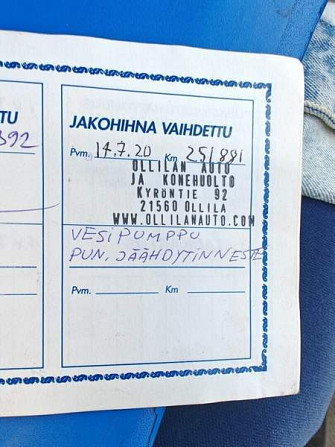 TU
392
JAKOHIHNA VAIHDETTU
Pvm. 14.7.20 Km 251891
OLLILAN AUTO
JA KONEHUOLTO
Kyröntie 92
21560 OLLILA
WWW.OLLILANAUTO.COM
VESIPUMPPU
PUN. JÄÄHDYTINNESTE
Pvm. Km